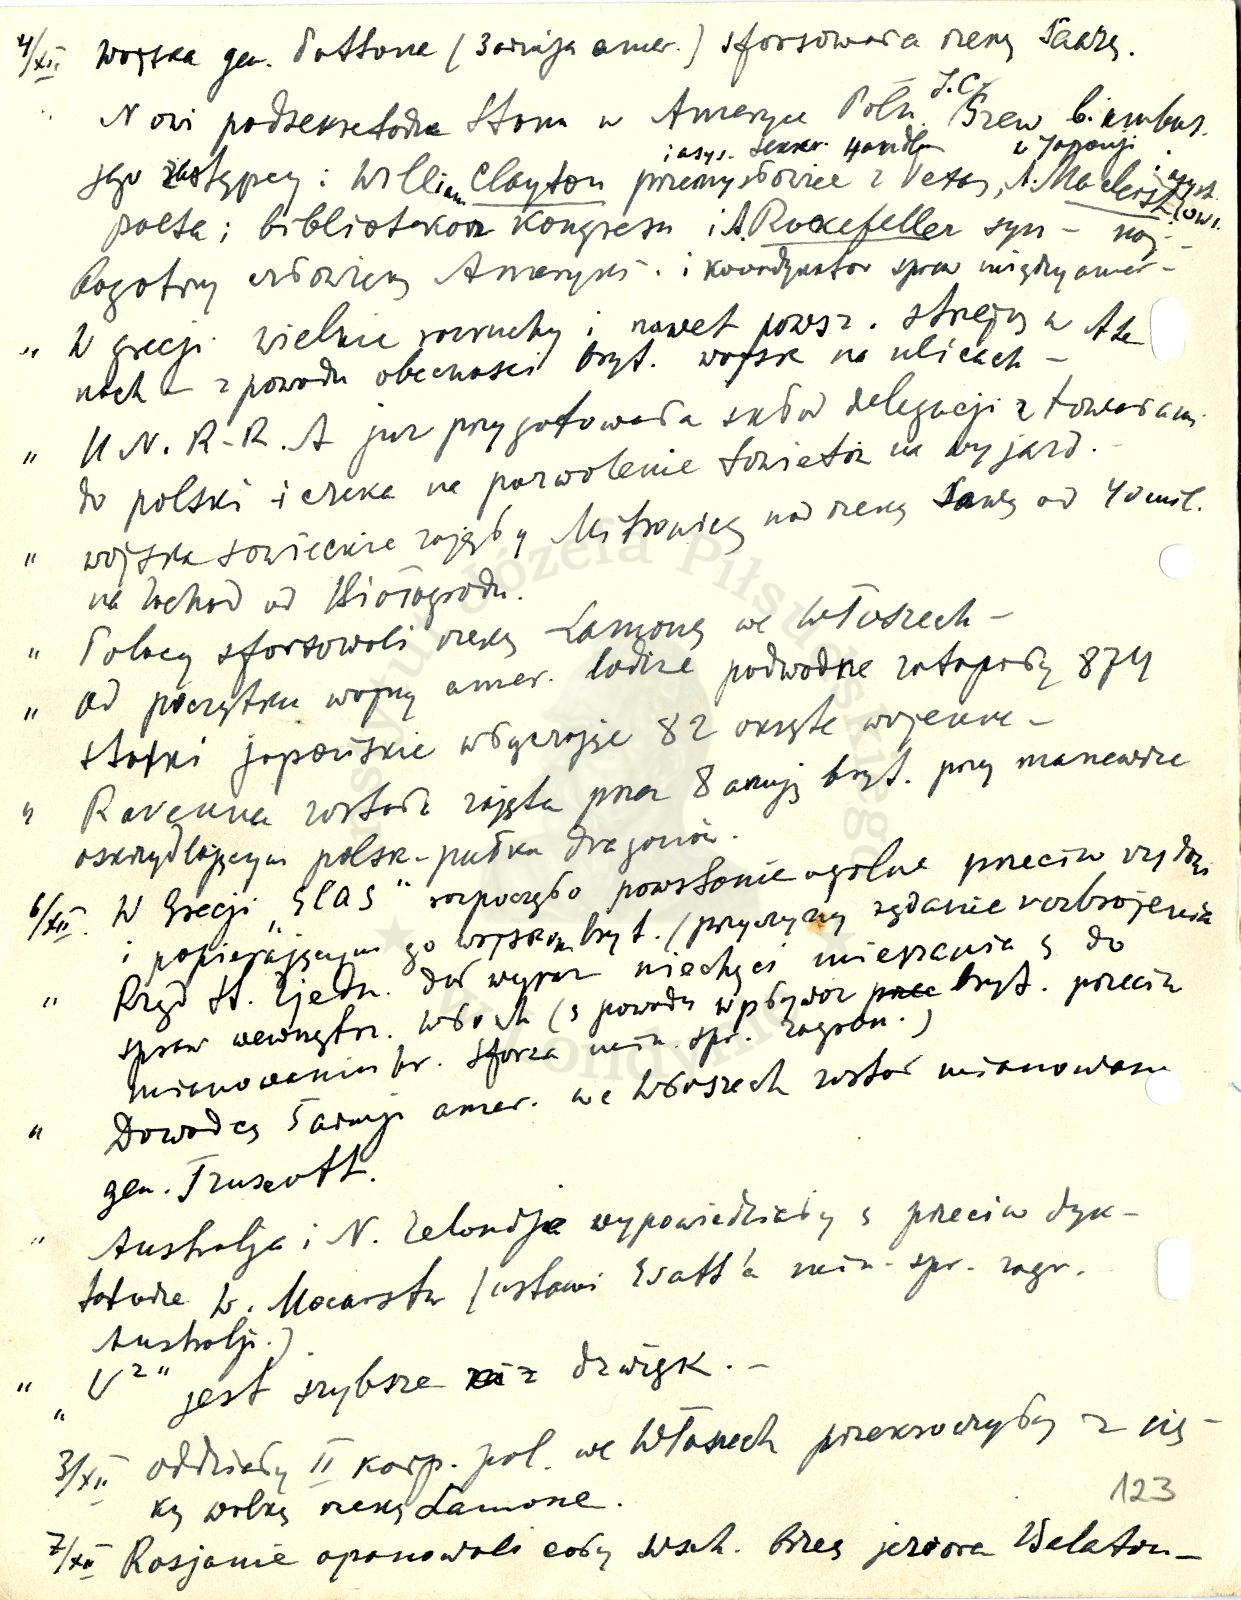 4/XII wojska gen. Pattona (3 armja amer.) sforsowała rzekę Saarę.
Nowi podsekretarze Stanu w Ameryce Półn. J.C. Grew b. ambas.
i asys. sekr. Handlu z Japonji
jego zastępcy: William Clayton przemysłowiec z Texas, A. Macleish
poeta i bibliotekarz Kongresu i A. Rockefeller syn - naj-
bogatszy człowiek Ameryki. i koordynator spraw międzyamer-
" W Grecji wielkie rozruchy i nawet powsz. strejk w Ate
nach - z powodu obecności bryt. wojsk na ulicach -
" U.N.R.R.A już przygotowała skład delegacji z towarami
do polski i czeka na pozwolenie Sowietów na wyjazd. -
" wojska sowieckie zajęły Mitrowicę nad rzeką Sawą od 40 mil.
na zachód od Białogrodu.
" Polacy sforsowali rzekę Lamonę we Włoszech -
" od początku wojny amer. łodzie podwodne zatopiły 874
statki japońskie włączając 82 okręty wojenne -
" Ravenna została zajęta przez 8 armję bryt. przy manewrze
oskrzydlającym polsk. pułku dragonów.
6/XII. W Grecji „Elas" rozpoczęło powstanie ogólne przeciw rządowi
i popierającym go wojskom bryt. (przyczyny żądanie rozbrojenia
" Rząd St. Zjedn. dał wyraz niechęci mieszania ś do
spraw wewnętrz. Włoch (s powodu wpływów prze bryt. przeciw
mianowaniu hr. Sforza min. spr. zagran.)
" Dowódcą 5 armji amer. we Włoszech został mianowany
gen. Truscott.
" Australja i N. Zelandja wypowiedziały ś przeciw dyk-
taturze W. Mocarstw (ustami Evatt'a min. spr. zagr.
Australji.)
" „V2" jest szybsze niż dzwięk. -
"
3/XII oddziały II korp. pol. we Włoszech przekroczyły z cię-
ką walką rzekę Lamone.
123
7/XII Rosjanie opanowali cały wsch. brzeg jeziora Balaton-